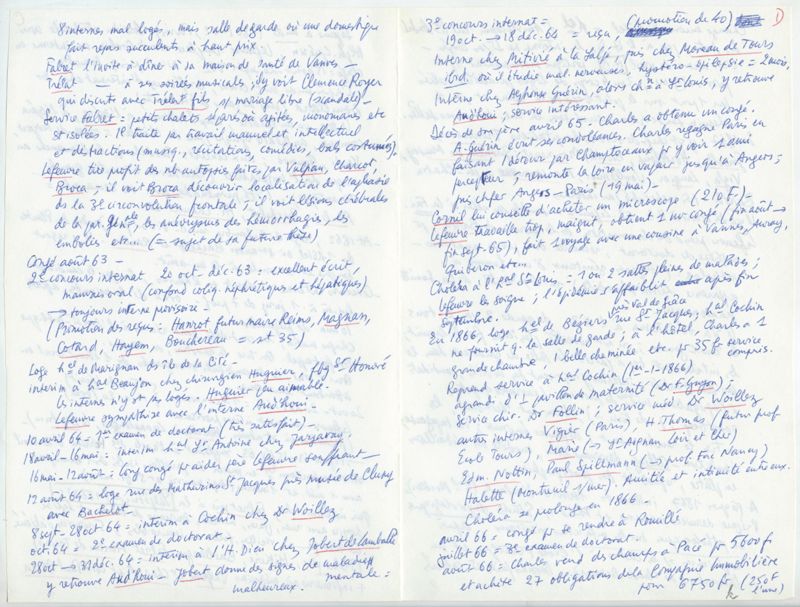 8 internes, mal logés, mais salle de garde où une domestique
fait repas succulents à haut prix.
Falret l'invite à dîner à sa maison de santé de Vanves —
Trélat — à ses soirées musicales, il y voit Clémence Royer
qui discute avec Trélat fils s/ mariage libre (scandale) —
Service Falret = petits chalets séparés où agités, monomanes etc
st isolés. Il traite par travail manuel et intellectuel
et distractions (musiq., récitations, comédies, bals costumés).
Lefeuvre tire profit des nb autopsies faites par Vulpian, Charcot,
Broca ; il voit Broca découvrir localisation de l'aphasie
ds la 3e circonvolution frontale ; il voit lésions cérébrales
de la par. génle, les anévrysmes des hémorrhagies, les
embolies etc... (= sujet de sa future thèse)
Congé août 63 —
2e concours internat 20 oct - déc. 63 : excellent écrit,
mauvais oral (confond coliq. néphrétiques et hépatiques)
→ toujours interne provisoire —
(Promotion des reçus : Hanrot futur maire Reims, Magnan,
Cotard, Hayem, Bouchereau = st 35)
Loge hel de Marignan ds île de la Cité —
intérim à hal Beaujon chez chirurgien Huguier, fbg St Honoré
les internes n'y st pas logés. Huguier peu aimable.
Lefeuvre sympathise avec l'interne Aud'houi —
10 avril 64 = 1er examen de doctorat (très satisfait) —
18 avril - 16 mai : intérim hal St Antoine chez Jarjavay.
16 mai - 12 août : long congé pr aider père Lefeuvre souffrant —
12 août 64 = loge rue des Mathurins St Jacques près musée de Cluny
avec Bachelot —
8 sept - 28 oct 64 = intérim à Cochin chez Dr Woillez
oct 64 = 2e examen de doctorat —
28 oct → 31 déc. 64 = intérim à l'H. Dieu chez Jobert de Lamballe
y retrouve Aud'houi — Jobert donne des signes de maladies
mentale =
malheureux.
3e concours internat =
19 oct → 18 déc. 64 = reçu, (promotion de 40)
Interne chez Mitivié à la Salpê, puis chez Moreau de Tours
ibid. où il étudie mal. nerveuses, hystéro-épilepsie = 2 mois,
Interne chez Alphonse Guérin, alors chn à St Louis, y retrouve
Aud'houi ; service intéressant.
Décès de son père avril 65. Charles a obtenu un congé.
A. Guérin écrit ses condoléances. Charles regagne Paris en
faisant 1 détour par Champtoceaux pr y voir 1 ami
percepteur ; remonte la Loire en vapeur jusqu'à Angers ;
puis ch fer Angers - Paris (19 mai) —
Cornil lui conseille d'acheter un microscope (210 F.)
Lefeuvre travaille trop, maigrit, obtient 1 nv congé (fin août →
fin sept 65), fait 1 voyage avec une cousine à Vannes, Auray,
Quiberon etc...
Choléra à l'hal St Louis = 1 ou 2 salles pleines de malades ;
Lefeuvre les soigne ; l'épidémie s'affaiblit après fin
septembre.
En 1866, loge hel de Béziers rue St Jacques, près Val de Grâce hal Cochin
ne fournit q. la salle de garde ; à l'hôtel, Charles a 1
grande chambre, 1 belle cheminée etc. pr 35 f service
compris.
Reprend service à hal Cochin (1er-1-1866)
agrandi d'1 pavillon de maternité (Dr F. Guyon) ;
service chir. Dr Follin ; service méd. Dr Woillez
autres internes Vigier (Paris), H. Thomas (futur prof
Ecole Tours), Marie (→ St Aignan Loir et Cher)
Edm. Nottin, Paul Spillmann (→ prof. Fac Nancy)
Halette (Montreuil s/ mer). Amitié et intimité entre eux.
Choléra se prolonge en 1866 —
avril 66 = congé pr se rendre à Rouillé
juillet 66 = 3e examen de doctorat.
août 66 = Charles vend des champs à Pacé pr 5600 f
et achète 27 obligations de la Compagnie Immobilière
pour 6750 fr. (250 f
l'une)